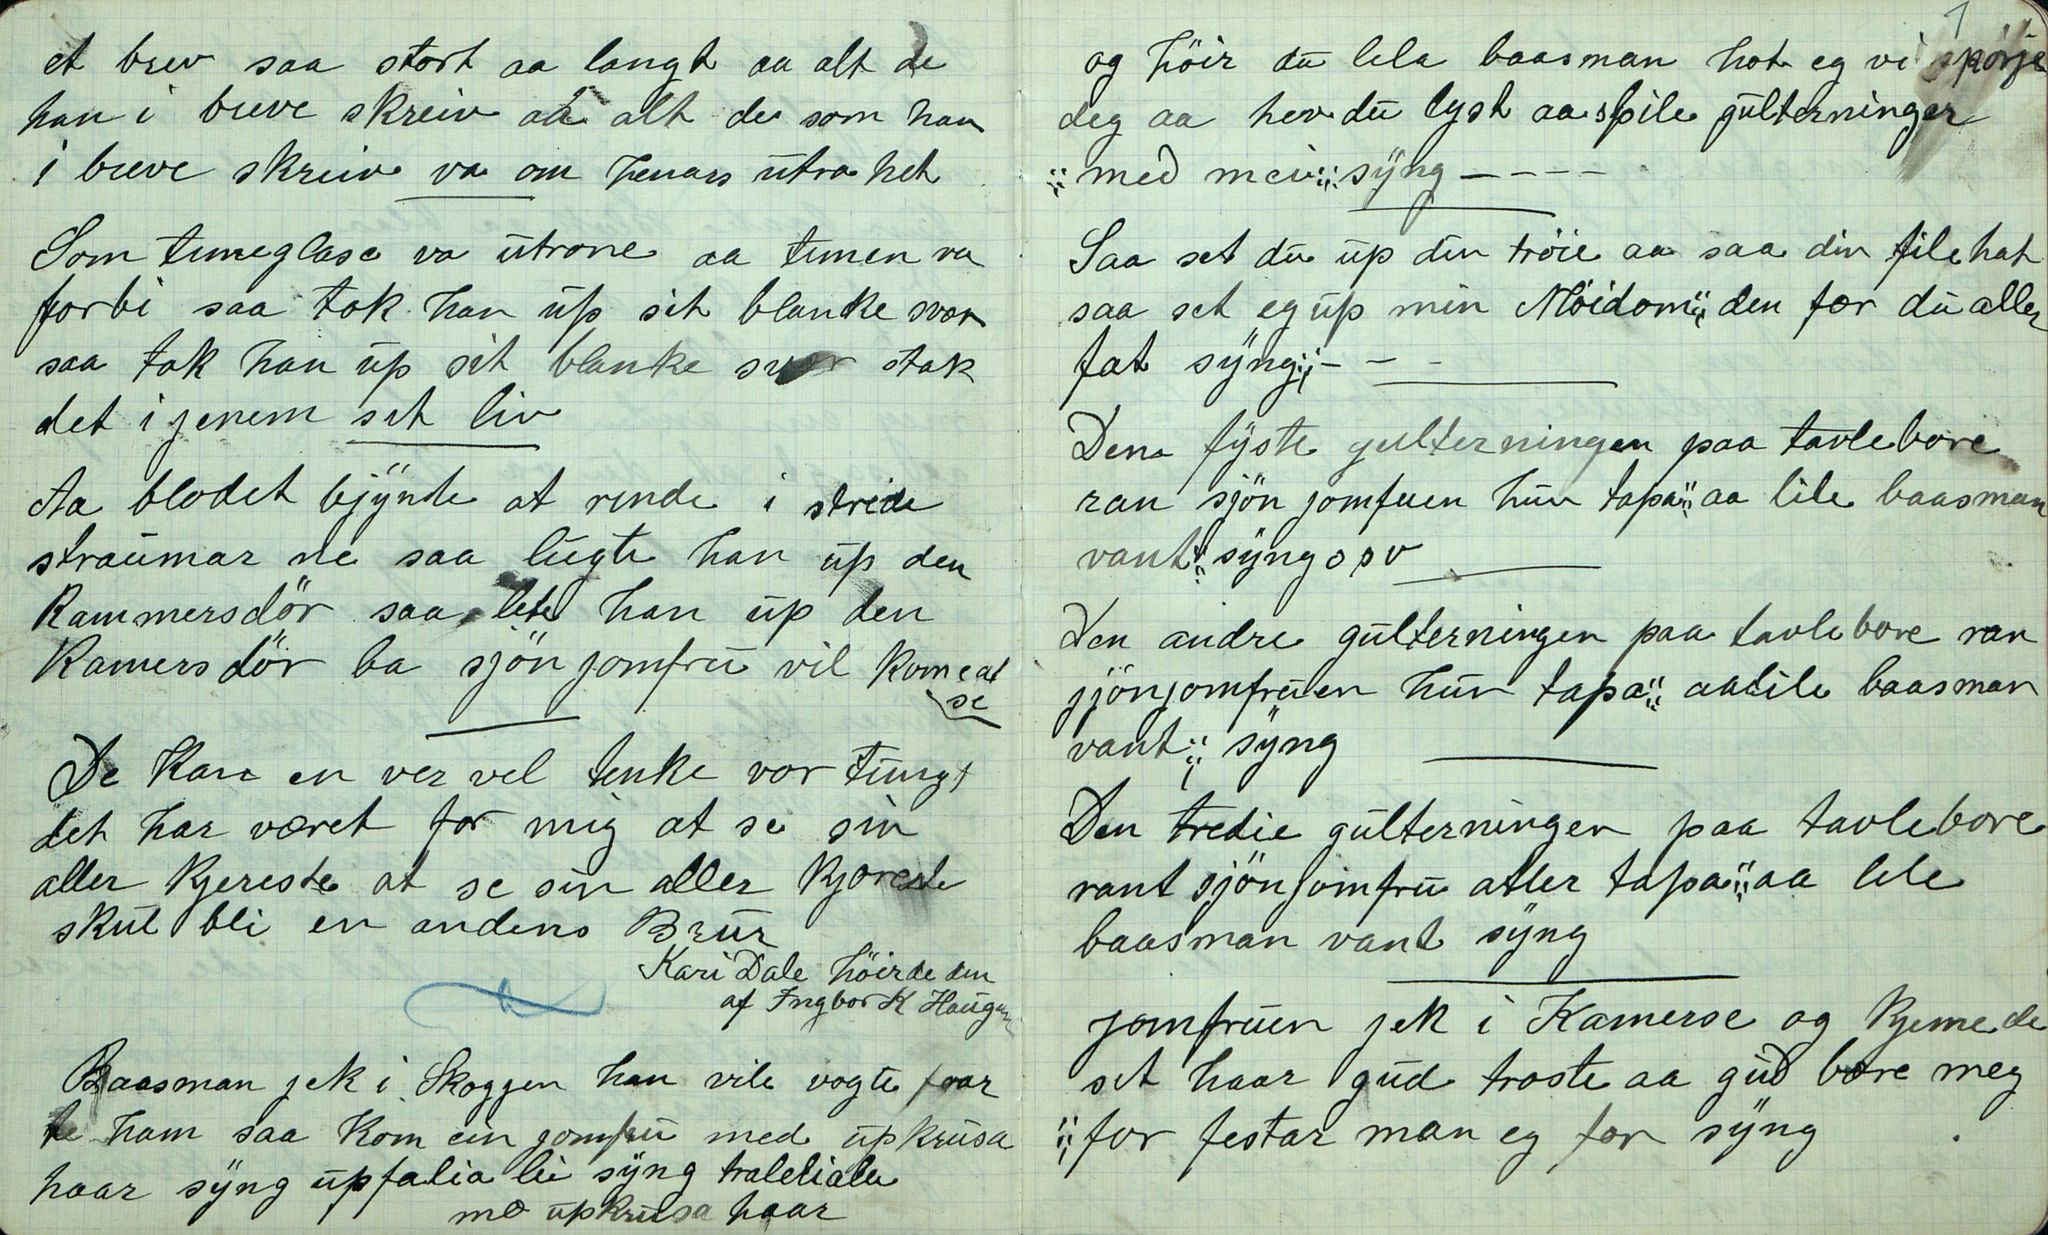 et brev saa stort aa langt aa alt de
han i breve skreiv aa alt de som han
i breve skreiv va om henars utrohet
Som timeglase va utrone aa timen va
forbi saa tok han up sit blanke svær
saa tok han up sit blanke svær stak
det i jenem sit liv
Aa blodet bjÿnte at rinde i stride
straumar ne saa lugte han up den
Kammersdör saa lete han up den
Kamersdör ba sjön jomfru vil kome at
se
De Kan en ver vel tenke vor tungt
det har været for mig at se sin
aller Kjereste at se sin aller Kjæreste
skul bli en andens Brur
Kari Dale höirde den
af Ingbor K Haugen
Baasman jek i Skoggen han vile vogte faar
te ham saa Kom ein jomfru med upkrusa
haar sÿng upfalia lii sÿng tralelialei
me upkrusa haar
1
og höir du lila baasman hot eg vi spörje
deg aa hev du lyst aa spile gulterninger
med mei sÿng - - - -
Saa set du up din tröie aa saa din file hat
saa set eg up min Möidom den fær du aller
fat sÿng - - -
Den fÿste gulterningen paa tavlebore
ran sjön jomfuen hun tapa aa lile baasman
vant sÿng osv
Den andre gulterningen paa tavlebore ran
sjönjomfruen hun tapa aa lile baasman
vant sÿng
Den tredie gulterningen paa tavlebore
rant sjönjomfru atler tapa aa lile
baasman vant sÿng
jomfruen jek i Kamerse og kjemede
sit haar gud troste aa gud bære meg
for festar man eg for sÿng